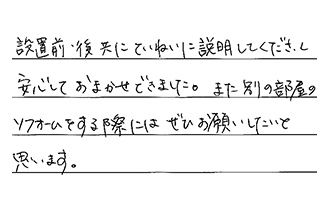 設置前・後共にていねいに説明してくださり
安心しておまかせできました。また別の部屋の
リフォームをする際にはぜひお願いしたいと
思います。